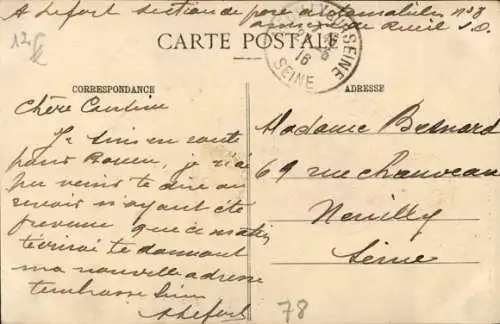 A Lefort section de parc d'automobiles n°3
annexe de Rueil S.O.
12.
CARTE POSTALE
SEINE
16
SEINE
CORRESPONDANCE
ADRESSE
Chère Cousine
Je suis en route
pour Rouen, je n'ai
pu venir te dire au
revoir n'ayant été
prévenu que ce matin
t'écrirai te donnant
ma nouvelle adresse
t'embrasse bien
A Lefort
Madame Besnard
69 rue Chauveau
Neuilly
Seine
78